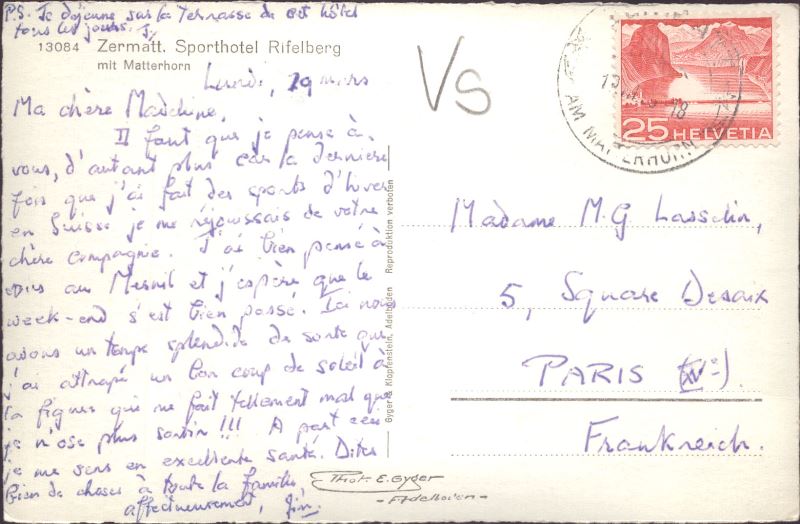 P.S. Je déjeune sur la terrasse de cet hôtel
tous les jours. J.
13084 Zermatt. Sporthotel Rifelberg
mit Matterhorn
Lundi, 19 mars
Ma chère
Il faut que je pense à
vous, d'autant plus car la dernière
fois que j'ai fait des sports d'hiver
en Suisse je me réjouissais de votre
chère compagnie. J'ai bien pensé à
vous au Mesnil et j'espère que le
week-end s'est bien passé. Ici nous
avons un temps splendide de sorte que
j'ai attrapé un bon coup de soleil à
la figure qui me fait tellement mal que
je n'ose plus sortir!!! A part cela
je me sens en excellente santé. Dites
bien de choses à toute la famille
affectueusement, Jim.
Gyger & Klopfenstein, Adelboden Reproduktion verboten
Phot. E. Gyger
- Adelboden -
VS
AM MATTERHORN
18
25 HELVETIA
Madame M.G. Lasselin,
5, Square Desaix
PARIS (XVe).
Frankreich.